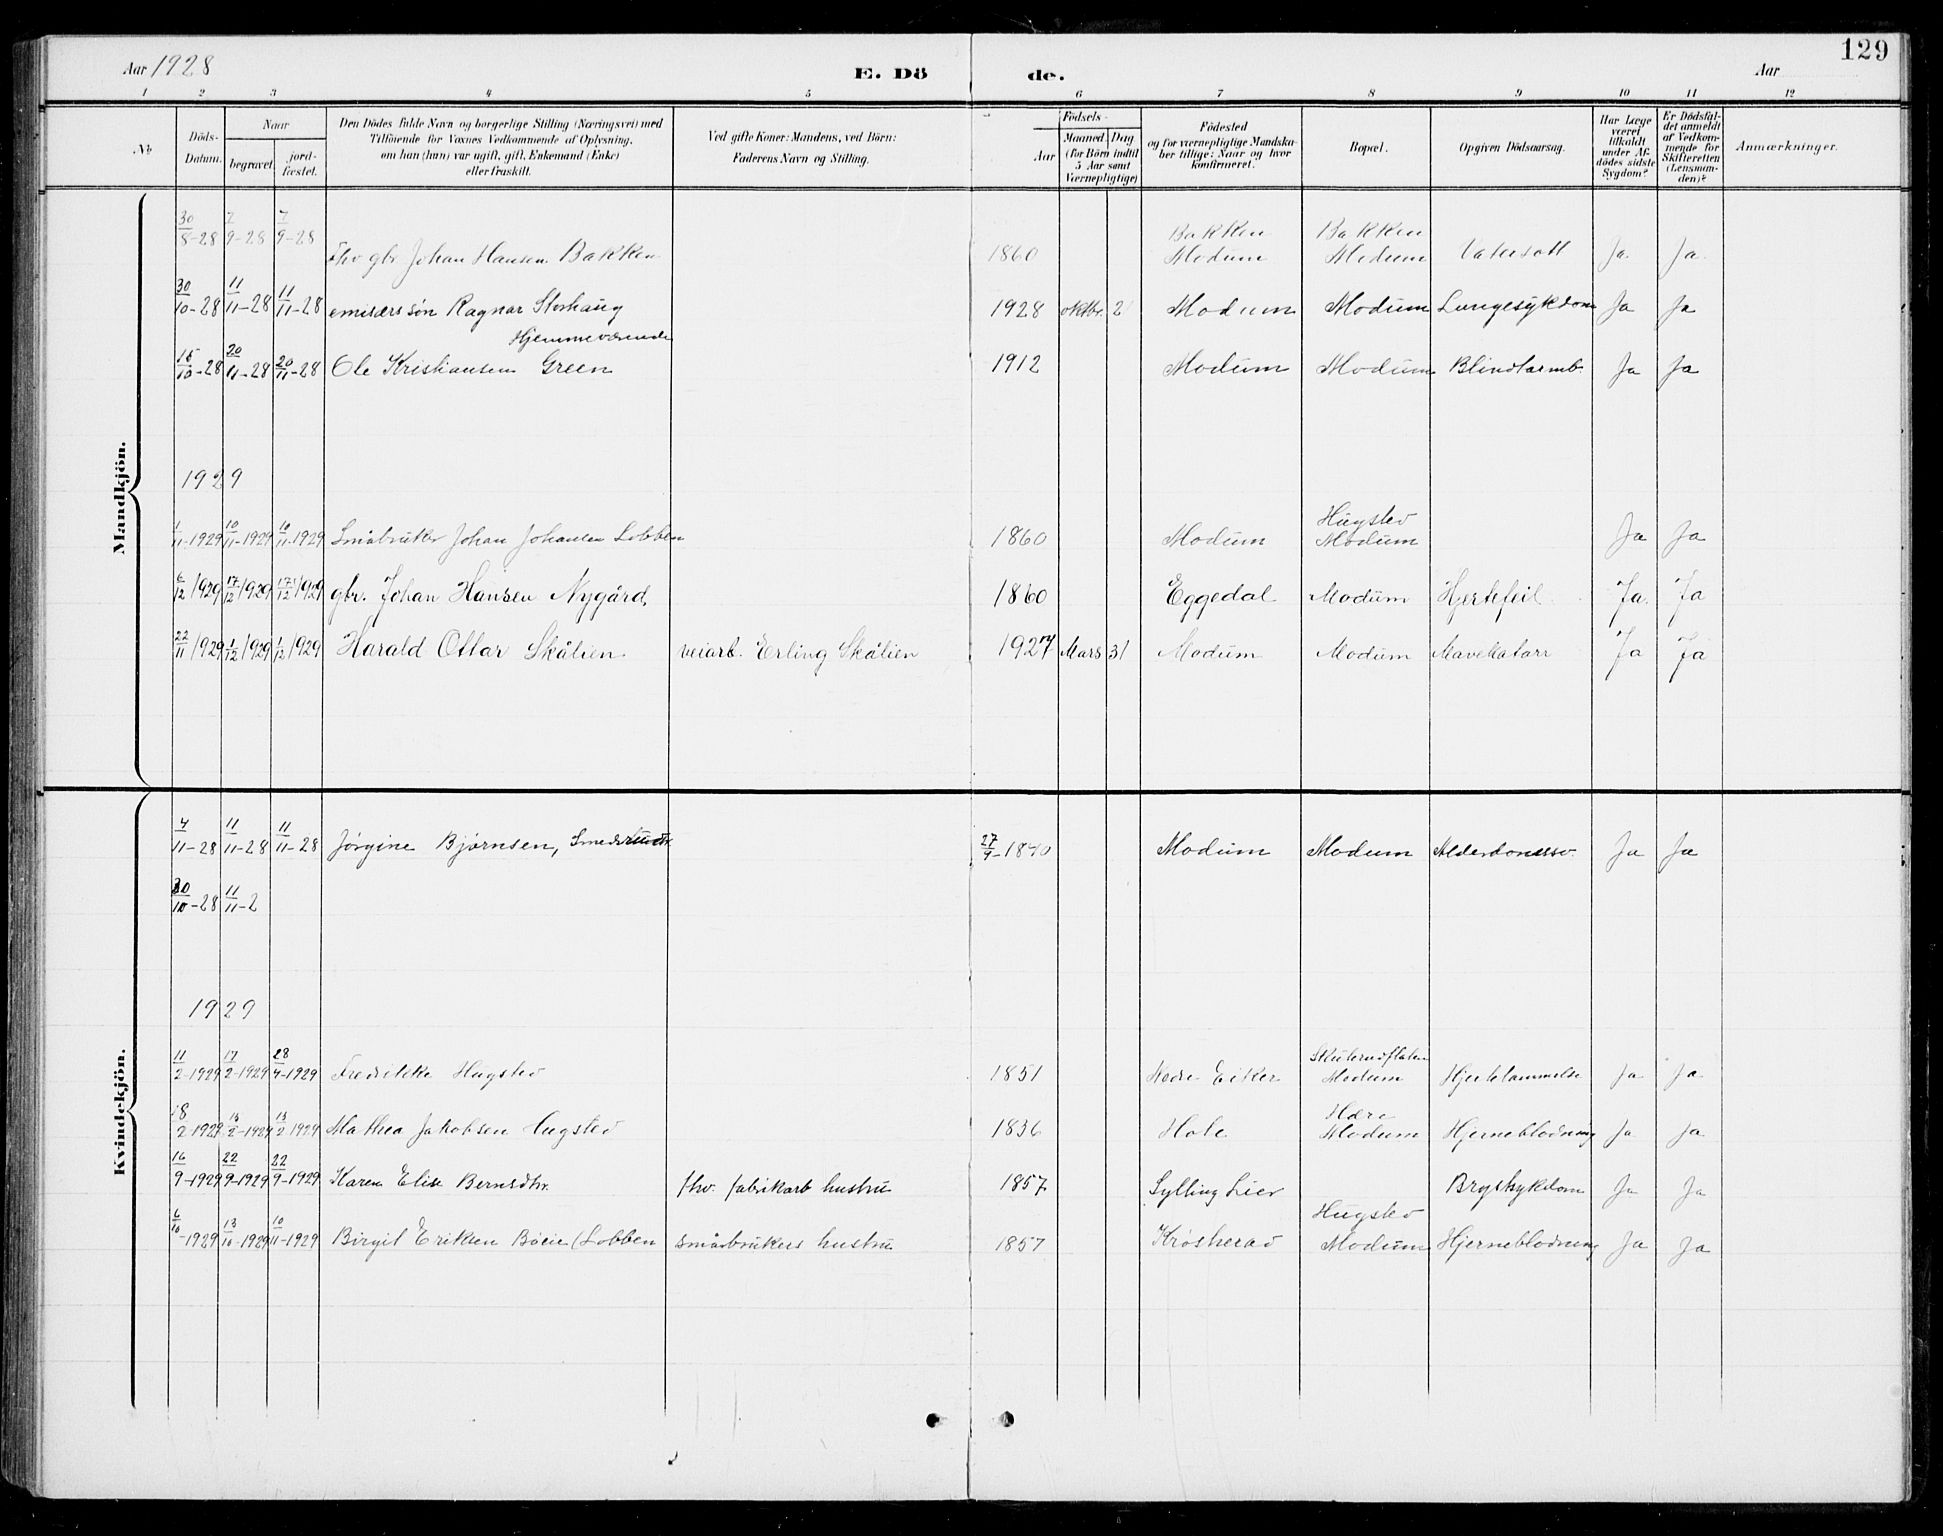 129
Aar 1928 E. Dö de. Aar
1 2 3 4 5 6 7 8 9 10 11 12
No
Döds-Datum.
Naar
begravet. jord-fæstet.
Den Dödes fulde Navn og borgerlige Stilling (Næringsvei) med
Tilföiende for Voxnes Vedkommende af Oplysning,
om han (hun) var ugift, gift, Enkemand (Enke)
eller fraskilt.
Ved gifte Koner: Mandens, ved Börn:
Faderens Navn og Stilling.
Födsels-
Aar Maaned Dag
(for Börn indtil
5 Aar samt
Værnepligtige)
Födested
og for værnepligtige Mandska-
ber tillige: Naar og hvor
konfirmeret.
Bopæl.
Opgiven Dödsaarsag.
Har Læge
været
tilkaldt
under Af-
dödes sidste
Sygdom?
Er Dödsfal-
det anmeldt
af Vedkom-
mende for
Skifteretten
(Lensman-
den)?
Anmærkninger.
Mandkjön.
30/8-28 7/9-28 7/9-28 Fhv gbr Johan Hansen Bakken 1860 Bakken Modum Bakken Modum Vatersott Ja. Ja.
30/10-28 11/11-28 11/11-28 emisærs søn Ragnar Storhaug 1928 oktbr. 2 Modum Modum Lungesykdom Ja Ja
Hjemmeværende
15/10-28 20/11-28 20/11-28 Ole Kristiansen Green 1912 Modum Modum Blindtarmb. Ja Ja
1929
1/11-1929 10/11-1929 10/11-1929 Småbruker Johan Johansen Lobben 1860 Modum Hugstev Modum Ja Ja
6/12 1929 17/12 1929 17/12 1929 gbr. Johan Hansen Nygård 1860 Eggedal Modum Hjertefeil Ja. Ja
22/11 1929 1/12 1929 1/12 1929 Harald Ottar Skålien veiarb. Erling Skålien 1927 Mars 31 Modum Modum Mavekatarr Ja Ja
Kvindekjön.
4/11-28 11/11-28 11/11-28 Jørgine Bjørnsen, 27/9-1840 Modum Modum Ja Ja
30/10-28 11/11-2
1929
11/2-1929 17/2-1929 28/4-1929 Fredrikke Hugstev 1851 Nedre Eiker Modum Hjertelammelse Ja Ja
8/2-1929 13/2-1929 13/2-1929 Mathea Jakobsen Hugstev 1836 Hole Hære Modum Hjerneblødning Ja Ja
16/9-1929 22/9-1929 22/9-1929 Karen Elise Berntsdtr. fhv. fabrikarb hustru 1857 Sylling Lier Brystsykdom Ja Ja
6/10-1929 13/10-1929 10/11-1929 Birgit Eriksen Bøeie (Lobben småbrukers hustru 1857 Krøsherad Hugstev Modum Hjerneblødning Ja Ja